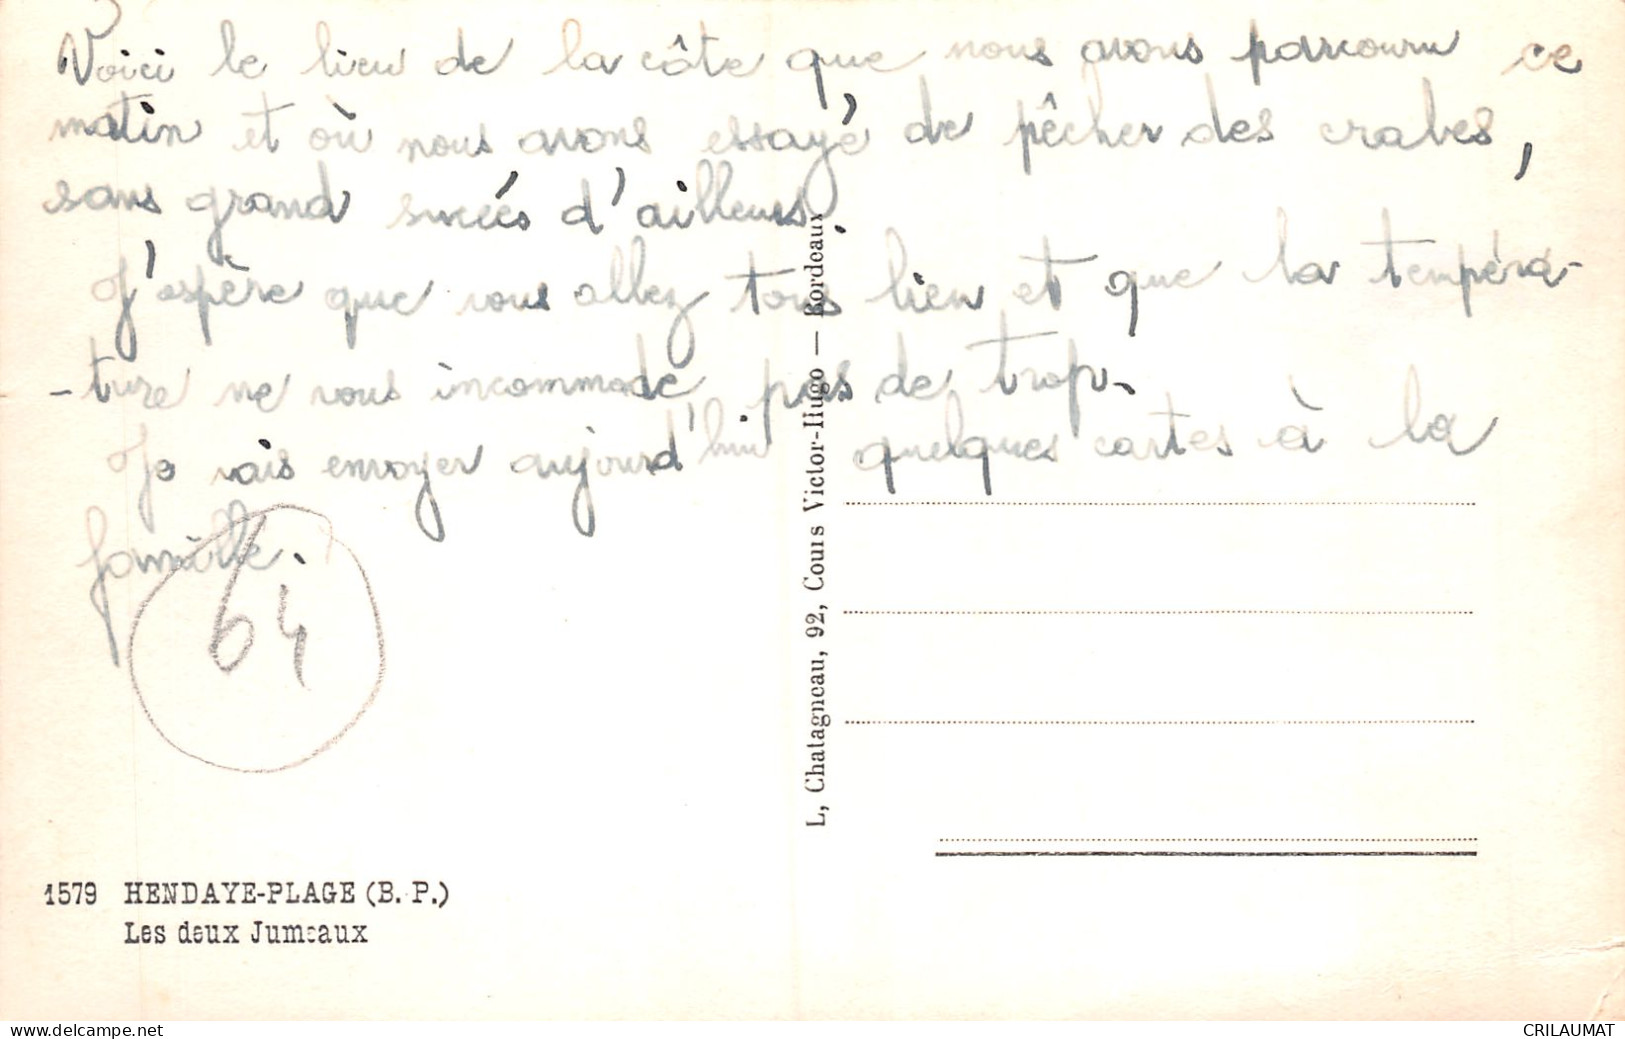 Voici le lieu de la côte que nous avons parcouru ce
matin et où nous avons essayé de pêcher des crabes,
sans grand succés d'ailleurs.
J'espère que vous allez tous bien et que la tempéra-
-ture ne vous incommode pas de trop.
Je vais envoyer aujourd'hui quelques cartes à la
famille.
64
L, Chatagneau, 92, Cours Victor-Hugo — Bordeaux
1579 HENDAYE-PLAGE (B. P.)
Les deux Jumeaux
www.delcampe.net
CRILAUMAT